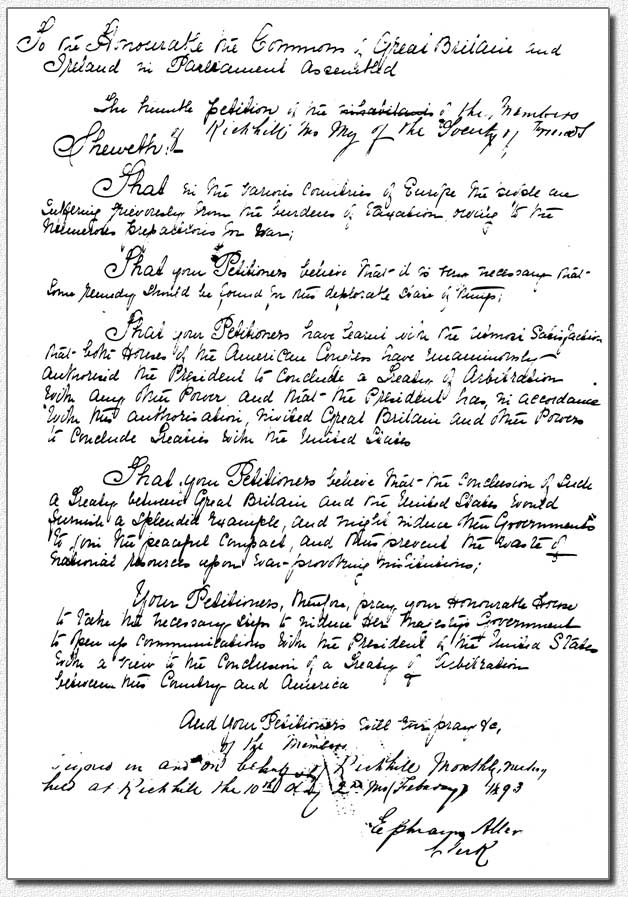 To the Honourable the Commons of Great Britain and
Ireland in Parliament Assembled
The humble petition of the inhabitants of the Members
Richhill Mo Mtg of the Society of Friends
Sheweth:
That in the various Countries of Europe the people are
suffering grievously from the burdens of taxation owing to the
Numerous preparations for War;
That your Petitioners believe that it is very necessary that
some remedy should be found for this deplorable state of things;
That your Petitioners have learnt with the utmost Satisfaction
that both Houses of the American Congress have unanimously
authorised the President to conclude a Treaty of Arbitration
with any other Power, and that the President has, in accordance
with this authorisation, invited Great Britain and other Powers
to conclude Treaties with the United States
That your Petitioners believe that the conclusion of such
a Treaty between Great Britain and the United States would
furnish a splendid example, and might induce other Governments
to join the peaceful compact, and thus prevent the waste of
national resources upon war-provoking institutions;
Your Petitioners, therefore, pray your Honourable House
to take the necessary steps to induce Her Majesty's Government
to open up communications with the President of the United States
with a view to the conclusion of a Treaty of Arbitration
between this Country and America
And your Petitioners will ever pray &c,
of the Members
Signed in and on behalf of Richhill Monthly Meeting
held at Richhill the 10th of 2nd Mo (February) 1893
Ephraim Allen
Clerk